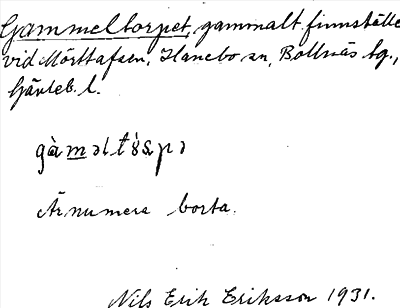 Gammeltorpet, gammalt finnställe
vid Mörttafsen, Hanebo sn, Bollnäs tg.,
Gävleb. l.
Är numera borta.
Nils Erik Eriksson 1931.